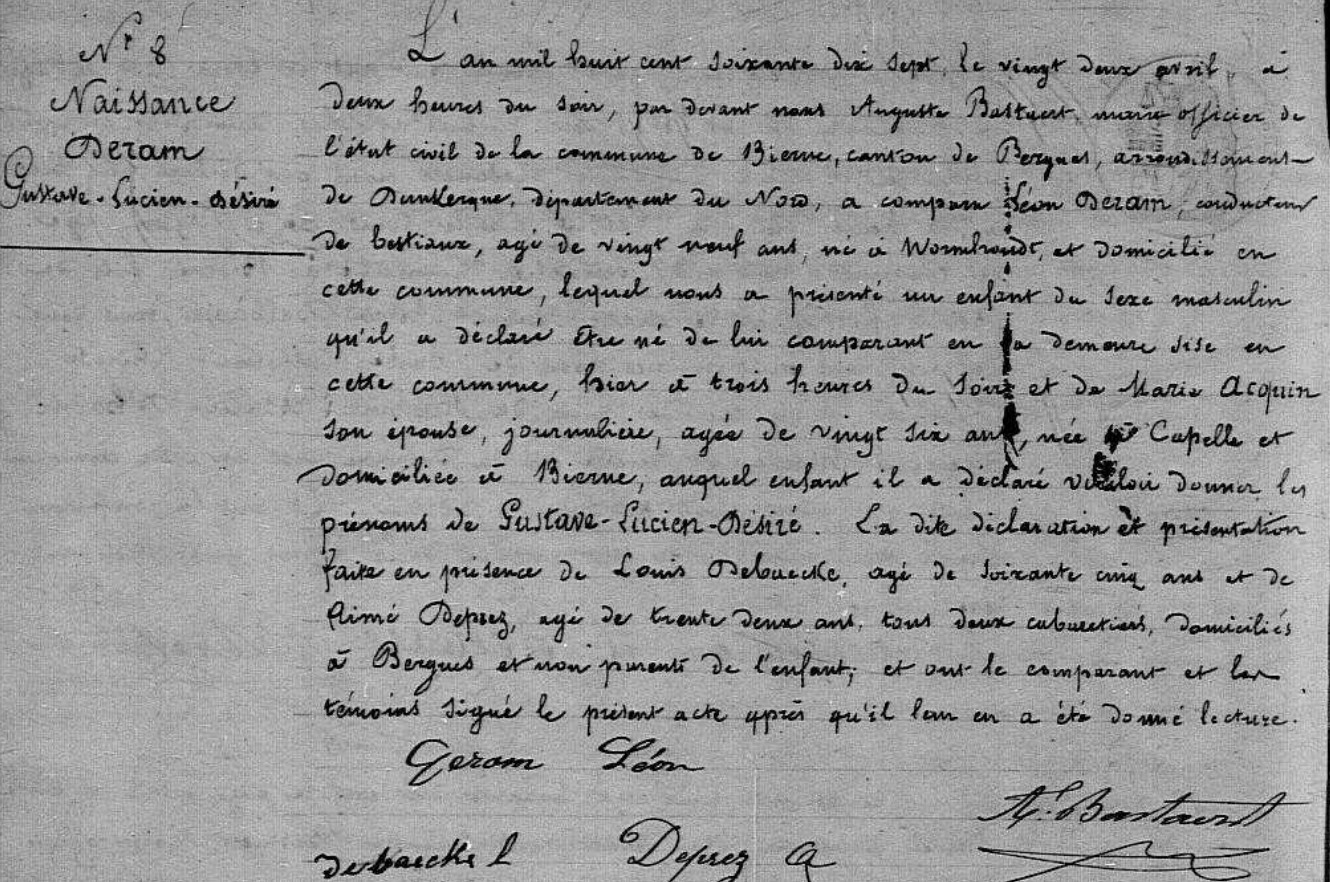 Nr 8
Naissance
Deram
Gustave-Lucien-Désiré
L'an mil huit cent soixante dix sept, le vingt deux avril, à
deux heures du soir, par devant nous Auguste Bastaert, maire officier de
l'état civil de la commune de Bierne, canton de Bergues, arrondissement
de Dunkerque, département du Nord, a comparu Léon Deram, conducteur
de bestiaux, agé de vingt neuf ans, né à Wormhoudt, et domicilié en
cette commune, lequel nous a présenté un enfant du sexe masculin
qu'il a déclaré être né de lui comparant en sa demeure sise en
cette commune, hier à trois heures du soir et de Marie Acquin
son épouse, journalière, agée de vingt six ans, née à Capelle et
domiciliée à Bierne, auquel enfant il a déclaré vouloir donner les
prénoms de Gustave-Lucien-Désiré. La dite déclaration et présentation
faite en présence de Louis Debaecke, agé de soixante cinq ans et de
Aimé Deprez, agé de trente deux ans, tous deux cabaretiers, domiciliés
à Bergues et non parents de l'enfant; et ont le comparant et les
témoins signé le présent acte après qu'il leur en a été donné lecture.
Deram Léon
At. Bastaert
debaecke l Deprez a